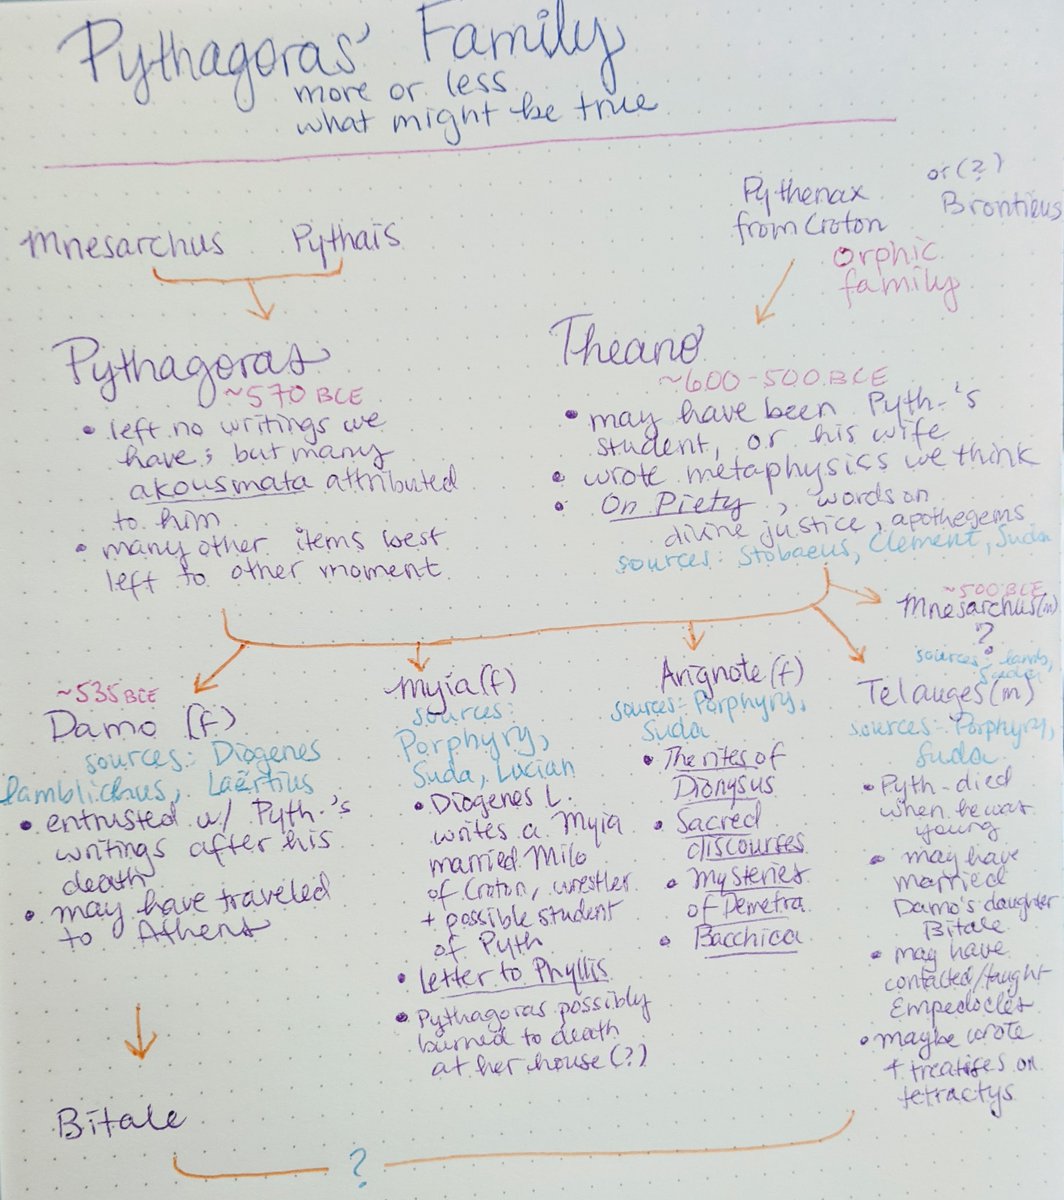 Pythagoras' Family
more or less
what might be true
Mnesarchus Pythais
Pythenax
from Croton
or (?)
Brontieus
Orphic
family
Pythagoras
~570 BCE
• left no writings we
have; but many
akousmata attributed
to him
• many other items best
left to other moment
Theano
~600-500 BCE
• may have been Pyth-'s
student, or his wife
• wrote metaphysics we think
• On Piety, words on
divine justice, apothegems
sources: Stobaeus, Clement, Suda
~500 BCE
Mnesarchus (m)
?
sources: Iamb,
Suda
~535 BCE
Damo (f)
sources: Diogenes
Iamblichus, Laërtius
• entrusted w/ Pyth-'s
writings after his
death
• may have traveled
to Athens
Bitale
Myia (f)
sources:
Porphyry,
Suda, Lucian
• Diogenes L.
writes a Myia
married Milo
of Croton, wrestler
+ possible student
of Pyth
• Letter to Phyllis
• Pythagoras possibly
burned to death
at her house (?)
Arignote (f)
sources: Porphyry,
Suda
• The rites of
Dionysus
• Sacred
discourses
• Mysteries
of Demetra
• Bacchica
Telauges (m)
sources: Porphyry,
Suda
• Pyth-died
when he was
young
• may have
married
Damo's daughter
Bitale
• may have
contacted/taught
Empedocles
• maybe wrote
4 treatises on
tetractys
?